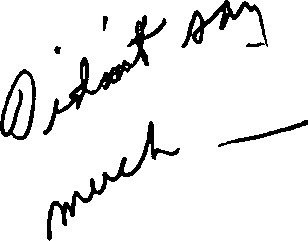 Didn't say
much —